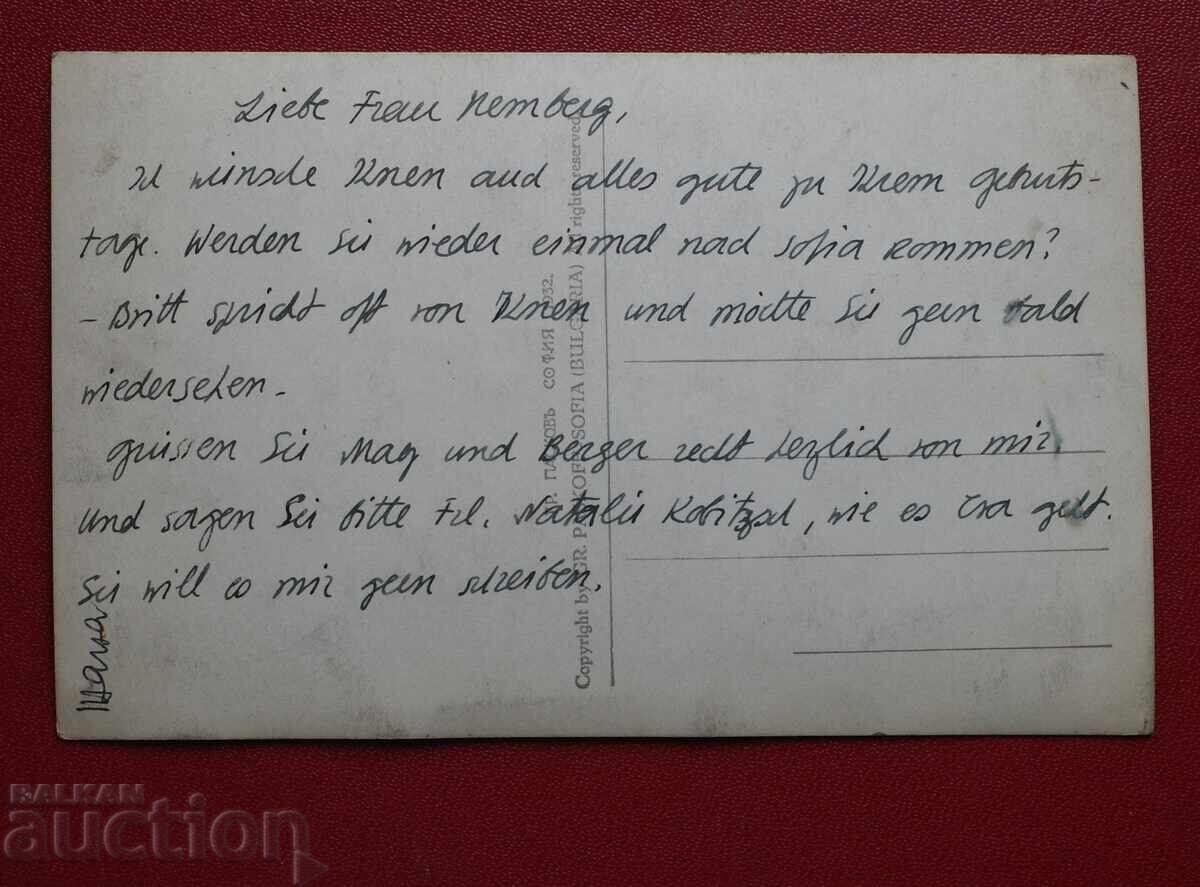 Liebe Frau Nemberg,
Ich wünsche Ihnen auch alles gute zu Ihrem geburts-
tage. Werden Sie wieder einmal nach Sofia kommen?
- Britt spricht oft von Ihnen und möchte Sie gern bald
wiedersehen.-
grüssen Sie May und Berger recht herzlich von mir.
und sagen Sie bitte Frl. Natalie Kobitzsch, wie es Ira geht.
Sie will es mir gern schreiben.
Copyright by GR. PASKOFF SOFIA (BULGARIA) All right reserved.
ГР. ПАСКОВЪ СОФИЯ 1932.
BALKAN
auction